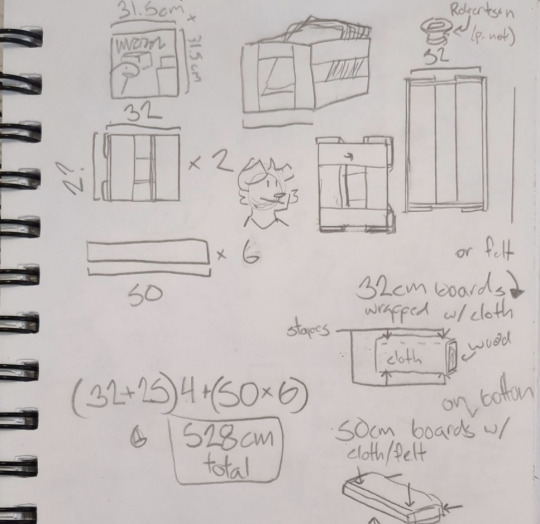 31.5cm x
31.5cm
Robertson
(p. not)
32
32
2?
x 2
x 6
50
or felt
32cm boards
wrapped w/ cloth
stapes
cloth
wood
(32+25)4+(50x6)
528cm
total
on bottom
50cm boards w/
cloth/felt